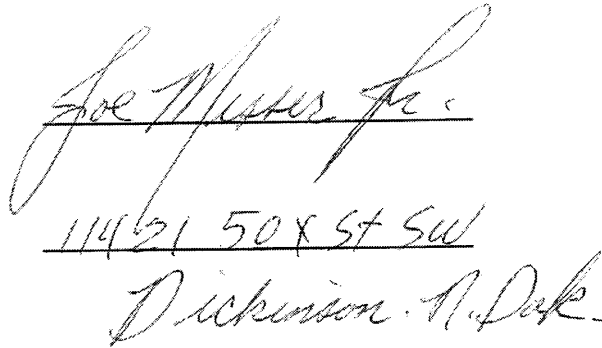 Joe Messer Jr.
11421 50X St SW
Dickinson. N. Dak.